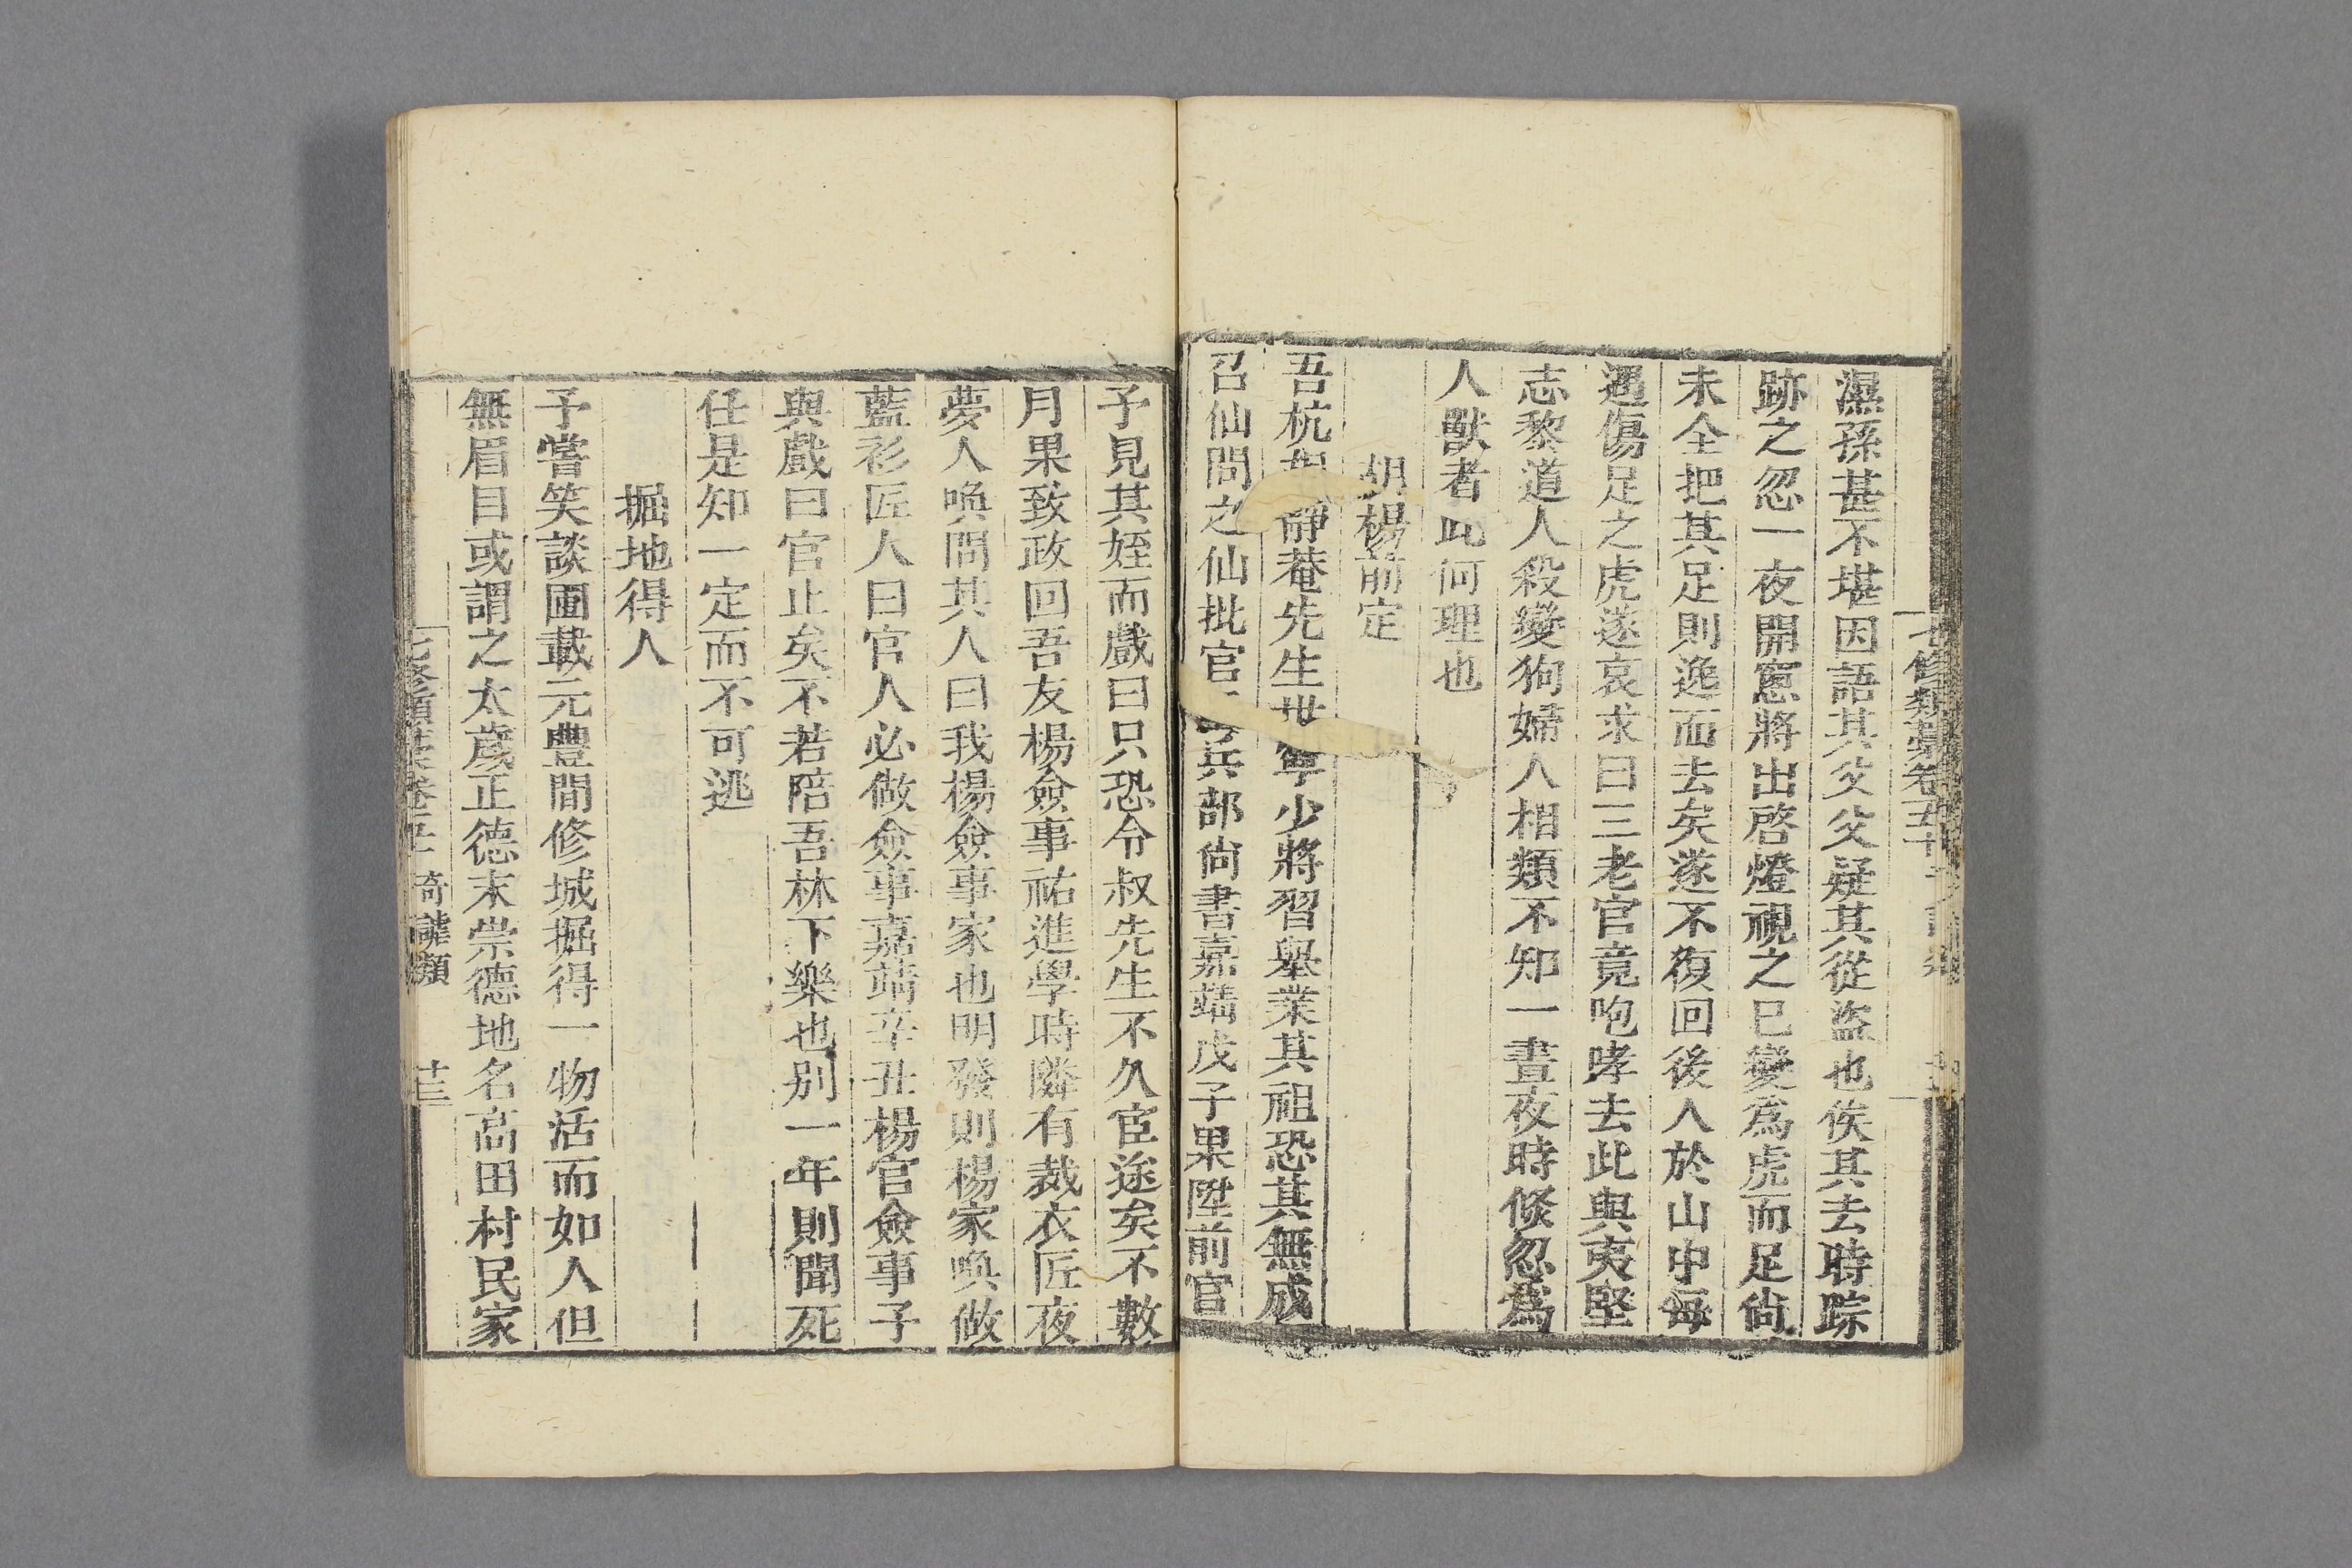 濕孫甚不堪因語其父父疑其從盜也俟其去時踪
跡之忽一夜開窓將出啓燈視之巳變爲虎而足尙
未全把其足則逸而去矣遂不復回後人於山中每
遇傷足之虎遂哀求曰三老官竟咆哮去此與夷堅
志黎道人殺變狗婦人相類不知一晝夜時倐忽爲
人獸者此何理也
胡楊前定
吾杭靜菴先生世寧少將習舉業其祖恐其無成
召仙問之仙批官兵部尙書嘉靖戊子果陞前官
予見其姪而戲曰只恐令叔先生不久宦途矣不數
月果致政回吾友楊僉事祐進學時隣有裁衣匠夜
夢人喚問其人曰我楊僉事家也明發則楊家喚做
藍衫匠人曰官人必做僉事嘉靖辛丑楊官僉事子
與戲曰官止矣不若陪吾林下樂也别一年則聞死
任是知一定而不可逃
掘地得人
予嘗笑談圃載元豐間修城掘得一物活而如人但
無眉目或謂之太歲正德末崇德地名高田村民家
七修類藁卷五十 奇謔類 十三